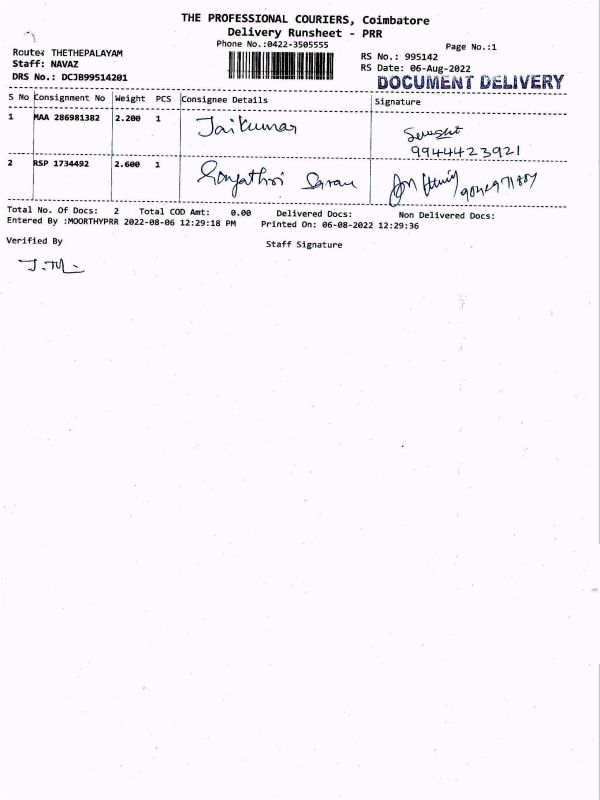 THE PROFESSIONAL COURIERS, Coimbatore
Delivery Runsheet - PRR
Phone No.:0422-3505555
Page No.:1
Route: THETHEPALAYAM
RS No.: 995142
Staff: NAVAZ
RS Date: 06-Aug-2022
DRS No.: DCJB99514201
DOCUMENT DELIVERY
S No Consignment No Weight PCS Consignee Details Signature
1 MAA 286981382 2.200 1 Jaikumar
9944423921
2 RSP 1734492 2.600 1 Saran
Total No. Of Docs: 2 Total COD Amt: 0.00 Delivered Docs: Non Delivered Docs:
Entered By :MOORTHYPRR 2022-08-06 12:29:18 PM Printed On: 06-08-2022 12:29:36
Verified By Staff Signature